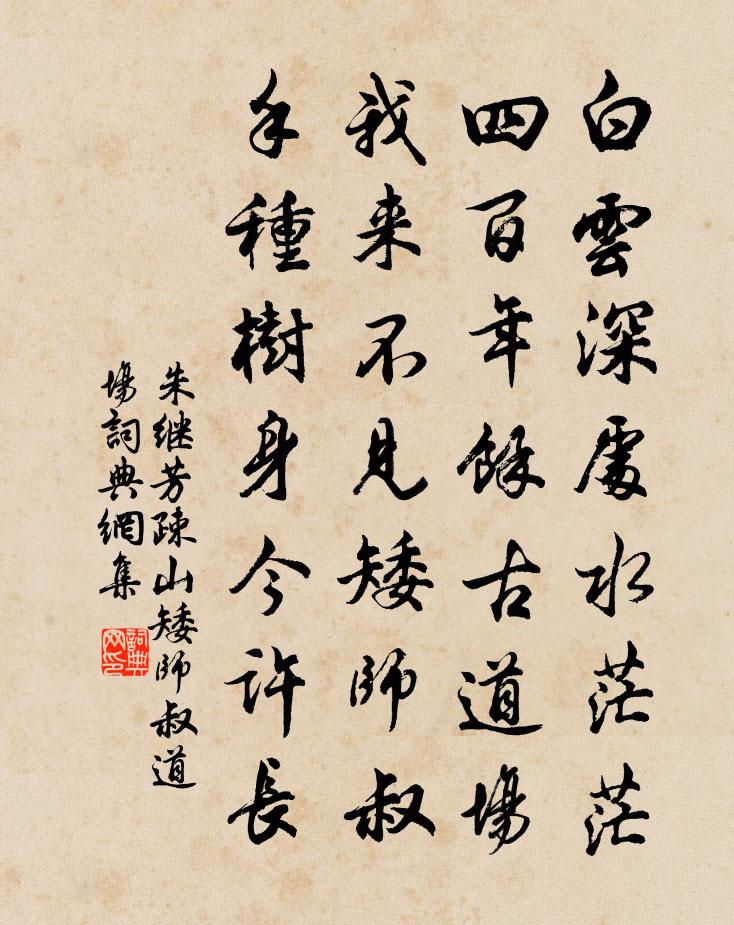 白雲深處水茫茫
四百年餘古道場
我来不見矮師叔
手種樹身今許長
朱继芳疎山矮師叔道
場詞典網集
詞典網印